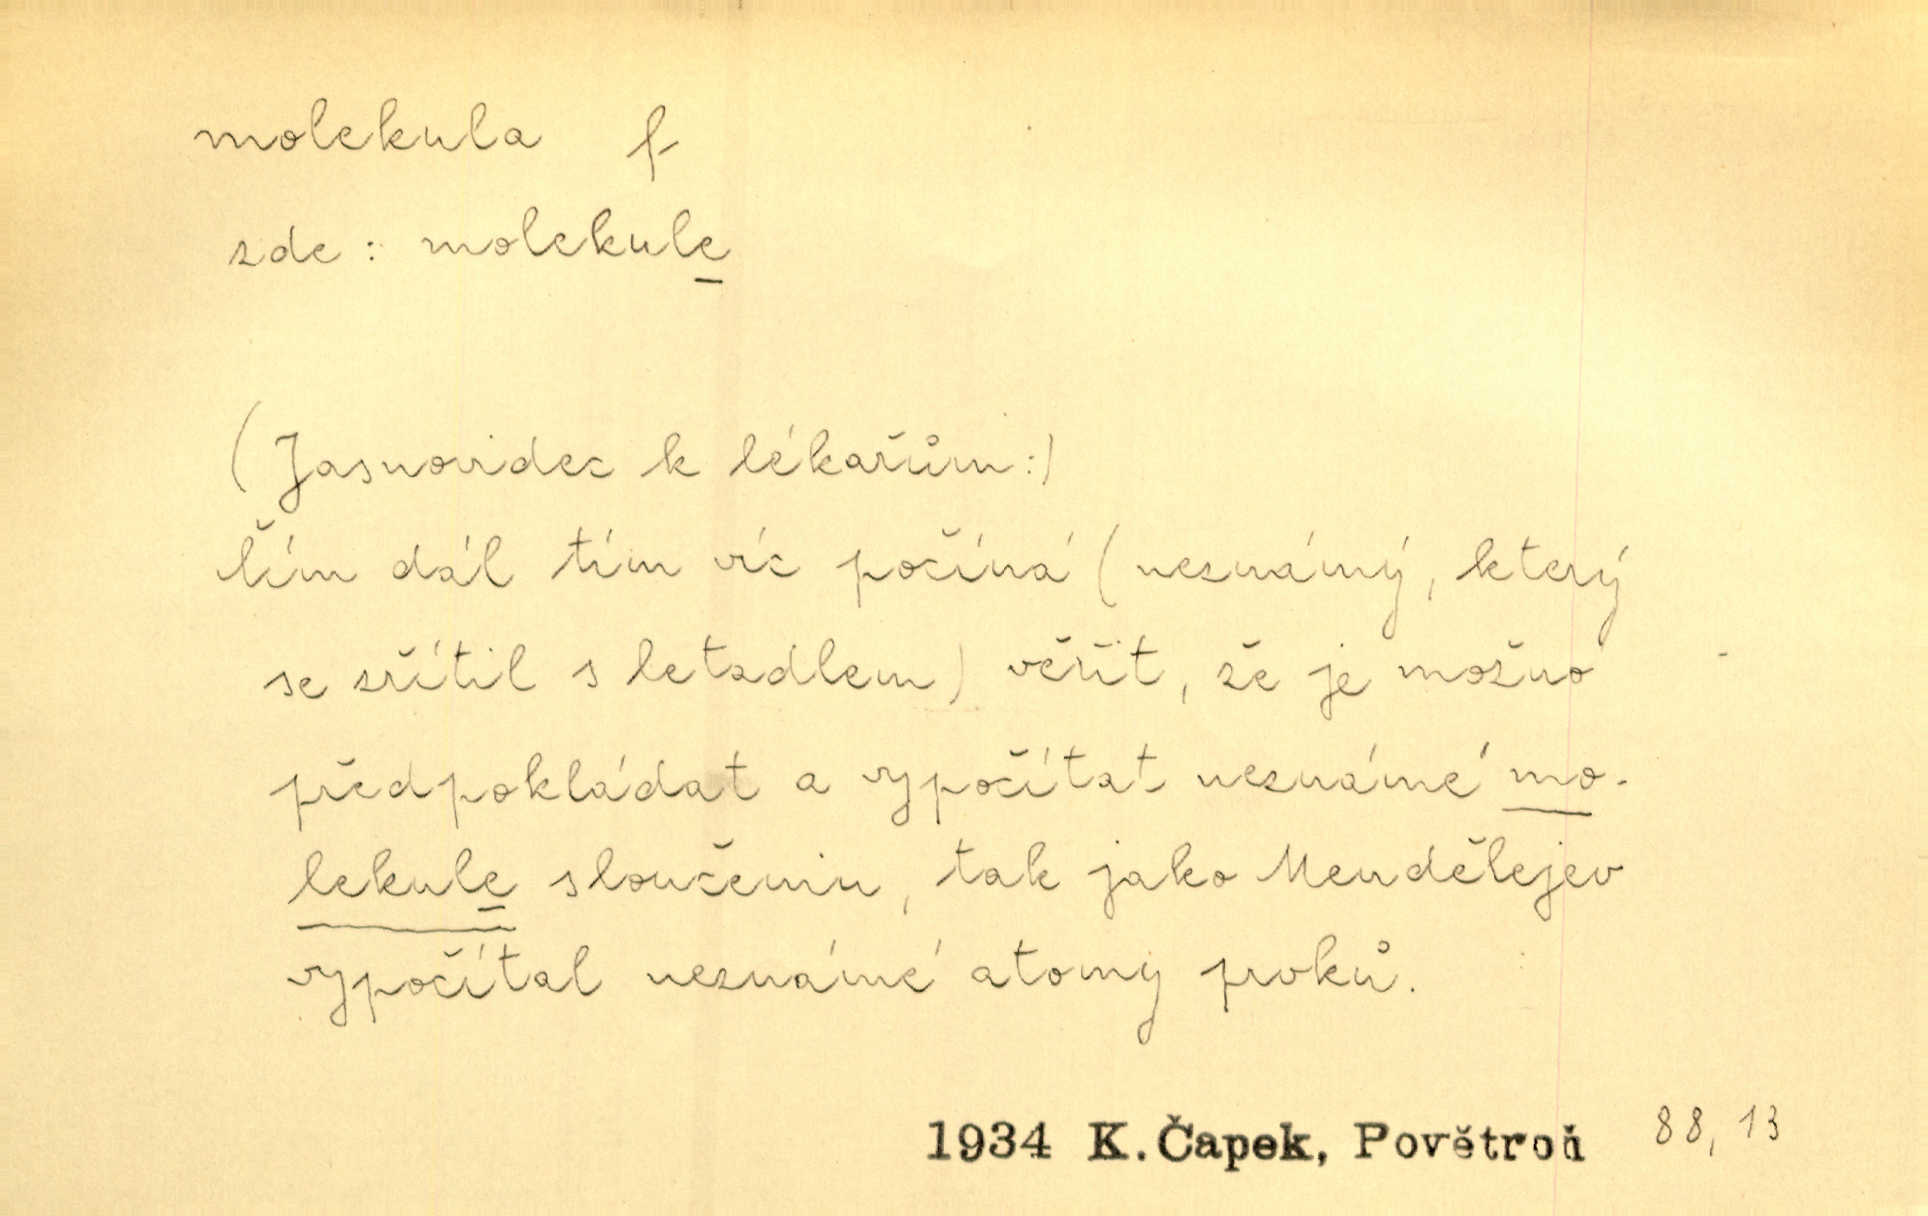 molekula f
zde: molekule
(Jasnovidec k lékařům:)
Čím dál tím víc počíná (neznámý, který
se zřítil s letadlem) věřit, že je možno
předpokládat a vypočítat neznámé mo-
lekule sloučenin, tak jako Mendělejev
vypočítal neznámé atomy prvků.
1934 K. Čapek, Povětroň 88, 13